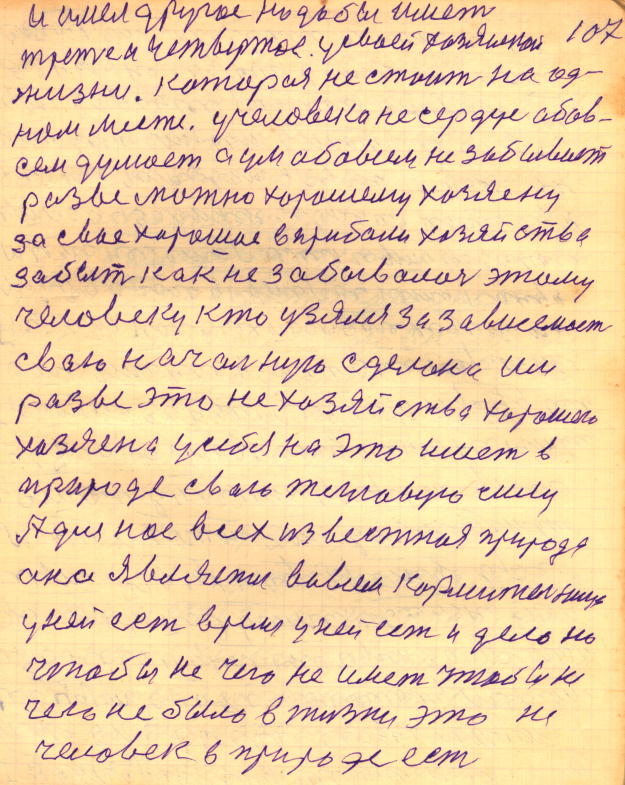 и имел другое надобы имет
третея четвертое. усваей хозяиской 107
жизни. Которая не стоит на од-
ном месте. у человека не сердце абов-
сем думает а ум абавсем не забывает
разве можно хорошему хозяену
за свае хорошае вприбали хозяйства
забыт как не забывался этому
человеку кто узялся за зависемост
сваю началную сделана им
разве это не хозяйства хорошего
хозяена усебя на это имет в
природе сваю живую силу
Адна нос всех известная природа
ана является вовсем Кормительница
уней ест время уней ест и дело но
чтобы не чего не имет чтобы не
чего не было в жизни это не
человек в природе ест